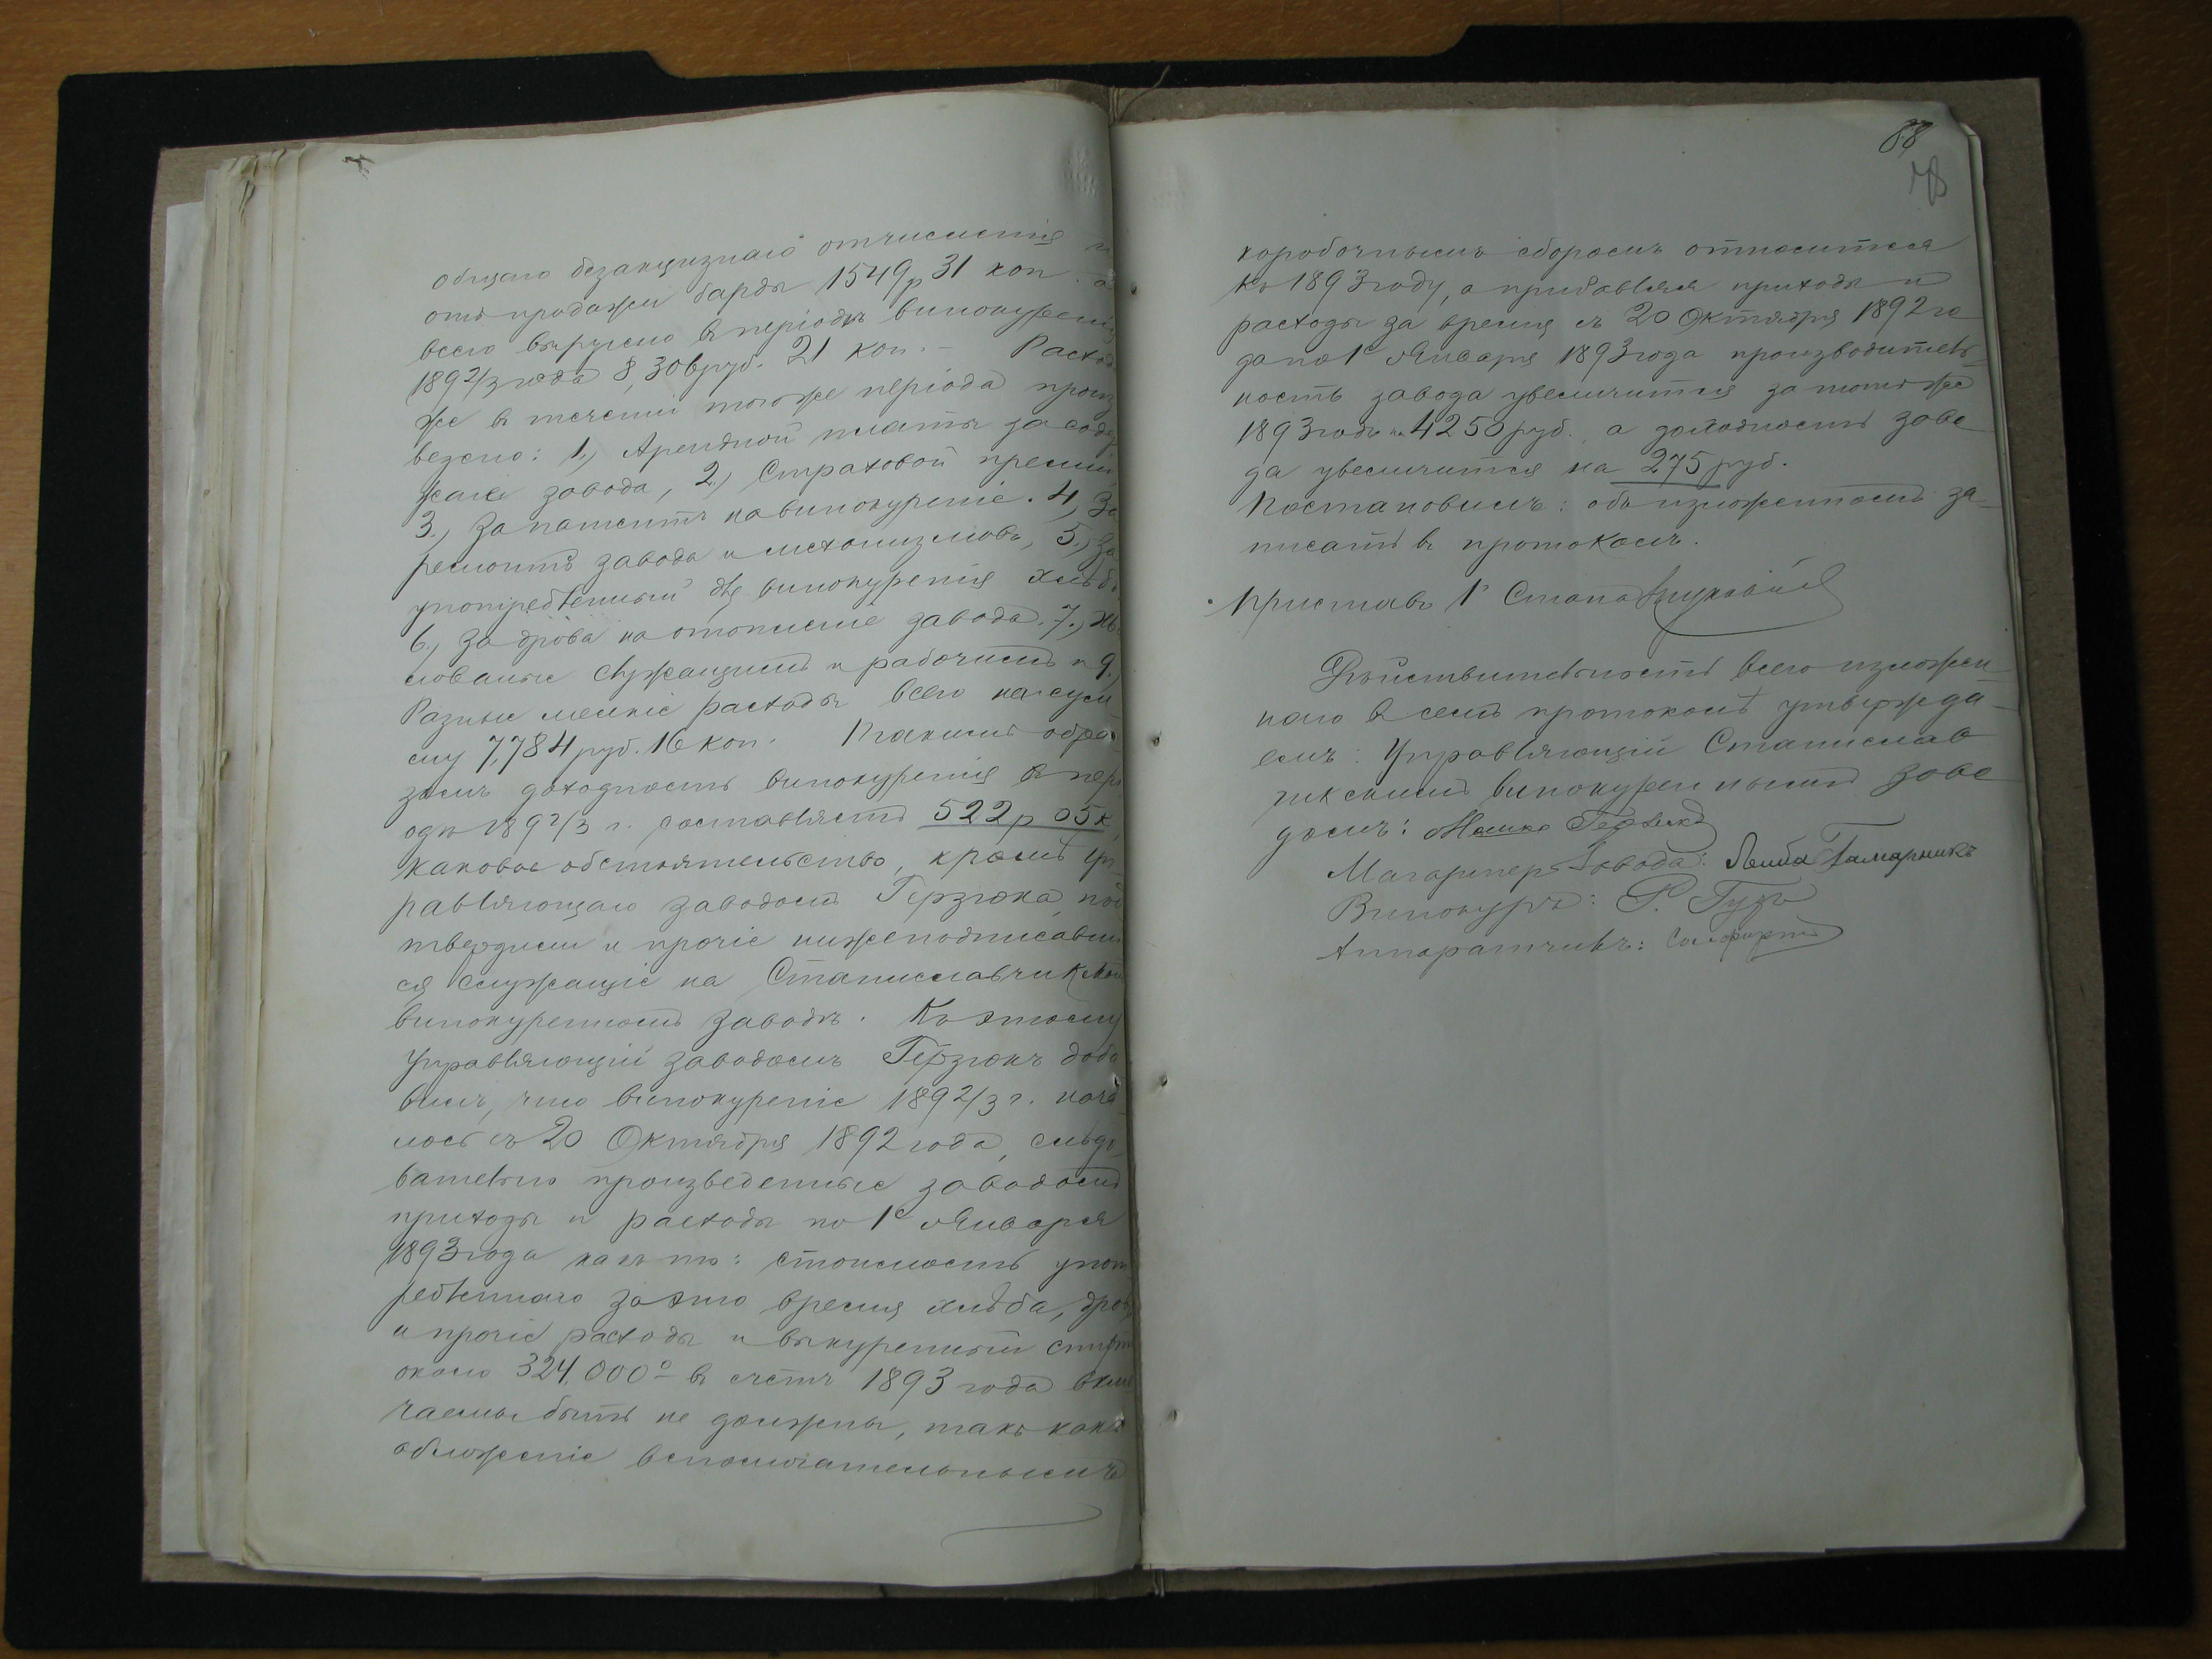 общаго безакцизнаго отчисленія и
отъ продажи барды 1549 р 31 коп. а
всего выручено въ періодъ винокуренія
1892/3 года 8,306 руб. 21 коп. — Расход
же въ теченіи того же періода произ
ведено: 1, Арендной платы за содер
жаніе завода, 2, Страховой преміи,
3, За патентъ на винокуреніе. 4, За
ремонтъ завода и механизмовъ, 5, За
употребленный для винокуренія хлѣбъ
6, За дрова на отопленіе завода. 7,
лованье служащимъ и рабочимъ и 9,
Разные мелкіе расходы всего на сум
му 7,784 руб. 16 коп. Такимъ обра
зомъ доходность винокуренія въ пері
одъ 1892/3 г. составляетъ 522 р 05 к,
каковое обстоятельство, кромѣ уп
равляющаго заводомъ Герзюка, под
твердили и прочіе нижеподписавші
ся служащіе на Станиславчикском
винокуренномъ заводѣ. Къ этому
Управляющій заводомъ Герзюкъ доба
вилъ, что винокуреніе 1892/3 г. нача
лось съ 20 Октября 1892 года, слѣдо
вательно произведенные заводомъ
приходы и расходы по 1е Января
1893 года какъ то: стоимость упот
ребленнаго за это время хлѣба, дровъ
и прочіе расходы и выкуренный спиртъ
около 324.000° въ счетъ 1893 года вклю
чаемы быть не должны, такъ какъ
обложеніе вспомогательнымъ
88
78
коробочнымъ сборомъ относится
къ 1893 году, а прибавляя приходы и
расходы за время съ 20 Октября 1892 го
да по 1е Января 1893 года производитель
ность завода увеличится за тотъ же
1893 годъ на 4250 руб., а доходность заво
да увеличится на 275 руб.
Постановилъ: объ изложенномъ за-
писать въ протоколъ.
Приставъ 1 Стана
Дѣйствительность всего изложен-
наго въ семъ протоколѣ утвержда-
емъ: Управляющій Станислав
чикскимъ винокуреннымъ заво
домъ: Мошко Герзюкъ
Магазинеръ Завода: Лейба Гамарникъ
Винокуръ: Р. Гузъ
Аппаратчикъ: